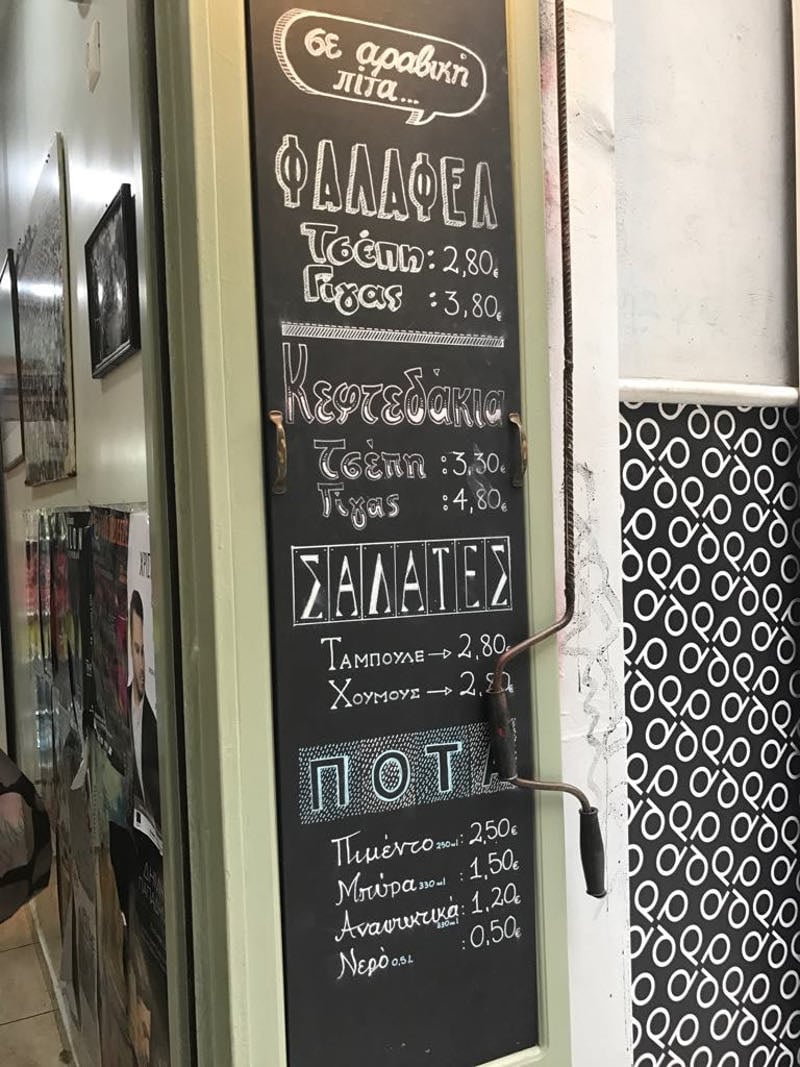 σε αραβική
πίτα...
ΦΑΛΑΦΕΛ
Τσέπη: 2,80€
Γίγας : 3,80€
Κεφτεδάκια
Τσέπη : 3,30€
Γίγας : 4,80€
ΣΑΛΑΤΕΣ
ΤΑΜΠΟΥΛΕ → 2,80€
ΧΟΥΜΟΥΣ → 2,80€
ΠΟΤΑ
Πιμέντο 250ml : 2,50€
Μπύρα 330ml : 1,50€
Αναψυκτικά 330ml : 1,20€
Νερό 0,5L : 0,50€